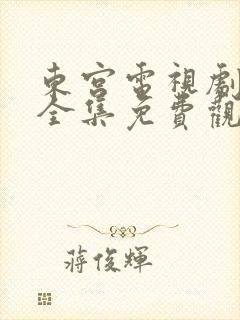 東宮電視劇
全集免費觀
蔣俊輝